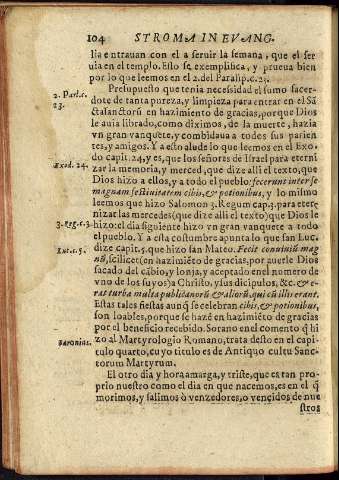 104 STROMA IN EVANG.
lia entrauan con el a seruir la semana, que el ser
uia en el templo. Esto se exemplifica, y prueua bien
por lo que leemos en el 2. del Paralip. c. 23.
2. Par. c. 23.
Presupuesto que tenia necessidad el sumo sacer-
dote de tanta pureza, y limpieza para entrar en el Sã
ctasanctorũ en hazimiento de gracias, porque Dios
le auia librado, como diximos, de la muerte, hazia
vn gran vanquete, y combidaua a todos sus parien
tes, y amigos. Y a esto alude lo que leemos en el Exo-
Exod. 24.
do capit. 24. y es, que los señores de Israel para eterni
zar la memoria, y merced, que dize alli el texto, que
Dios hizo a ellos, y a todo el pueblo: fecerunt inter se
magnam festiuitatem cibis, & potionibus, y lo mismo
leemos que hizo Salomon 3. Regum cap. 3. para eter
nizar las mercedes (que dize alli el texto) que Dios le
3. Reg. c. 3.
hizo: el dia siguiente hizo vn gran vanquete a todo
el pueblo. Y a esta costumbre apunta lo que san Luc.
Luc. c. 5.
dize capit. 5. que hizo san Mateo. Fecit conuiuiũ mag
nũ, scilicet (en hazimiẽto de gracias, por auerle Dios
sacado del cãbio, y lonja, y aceptado en el numero de
vno de los suyos) a Christo, y sus dicipulos, &c. & e-
rat turba multa publicanorũ & aliorũ, qui cũ illis erant.
Estas tales fiestas aunq̃ se celebran cibis, & potionibus,
son loables, porque se hazẽ en hazimiẽto de gracias
por el beneficio recebido. Sorano en el comento q̃ hi
Baronius.
zo al Martyrologio Romano, trata desto en el capi-
tulo quarto, cuyo titulo es de Antiquo cultu Sanc-
torum Martyrum.
El otro dia y hora amarga, y triste, que es tan pro-
prio nuestro como el dia en que nacemos, es en el q̃
morimos, y salimos o venzedores, o vencidos de nue
stros